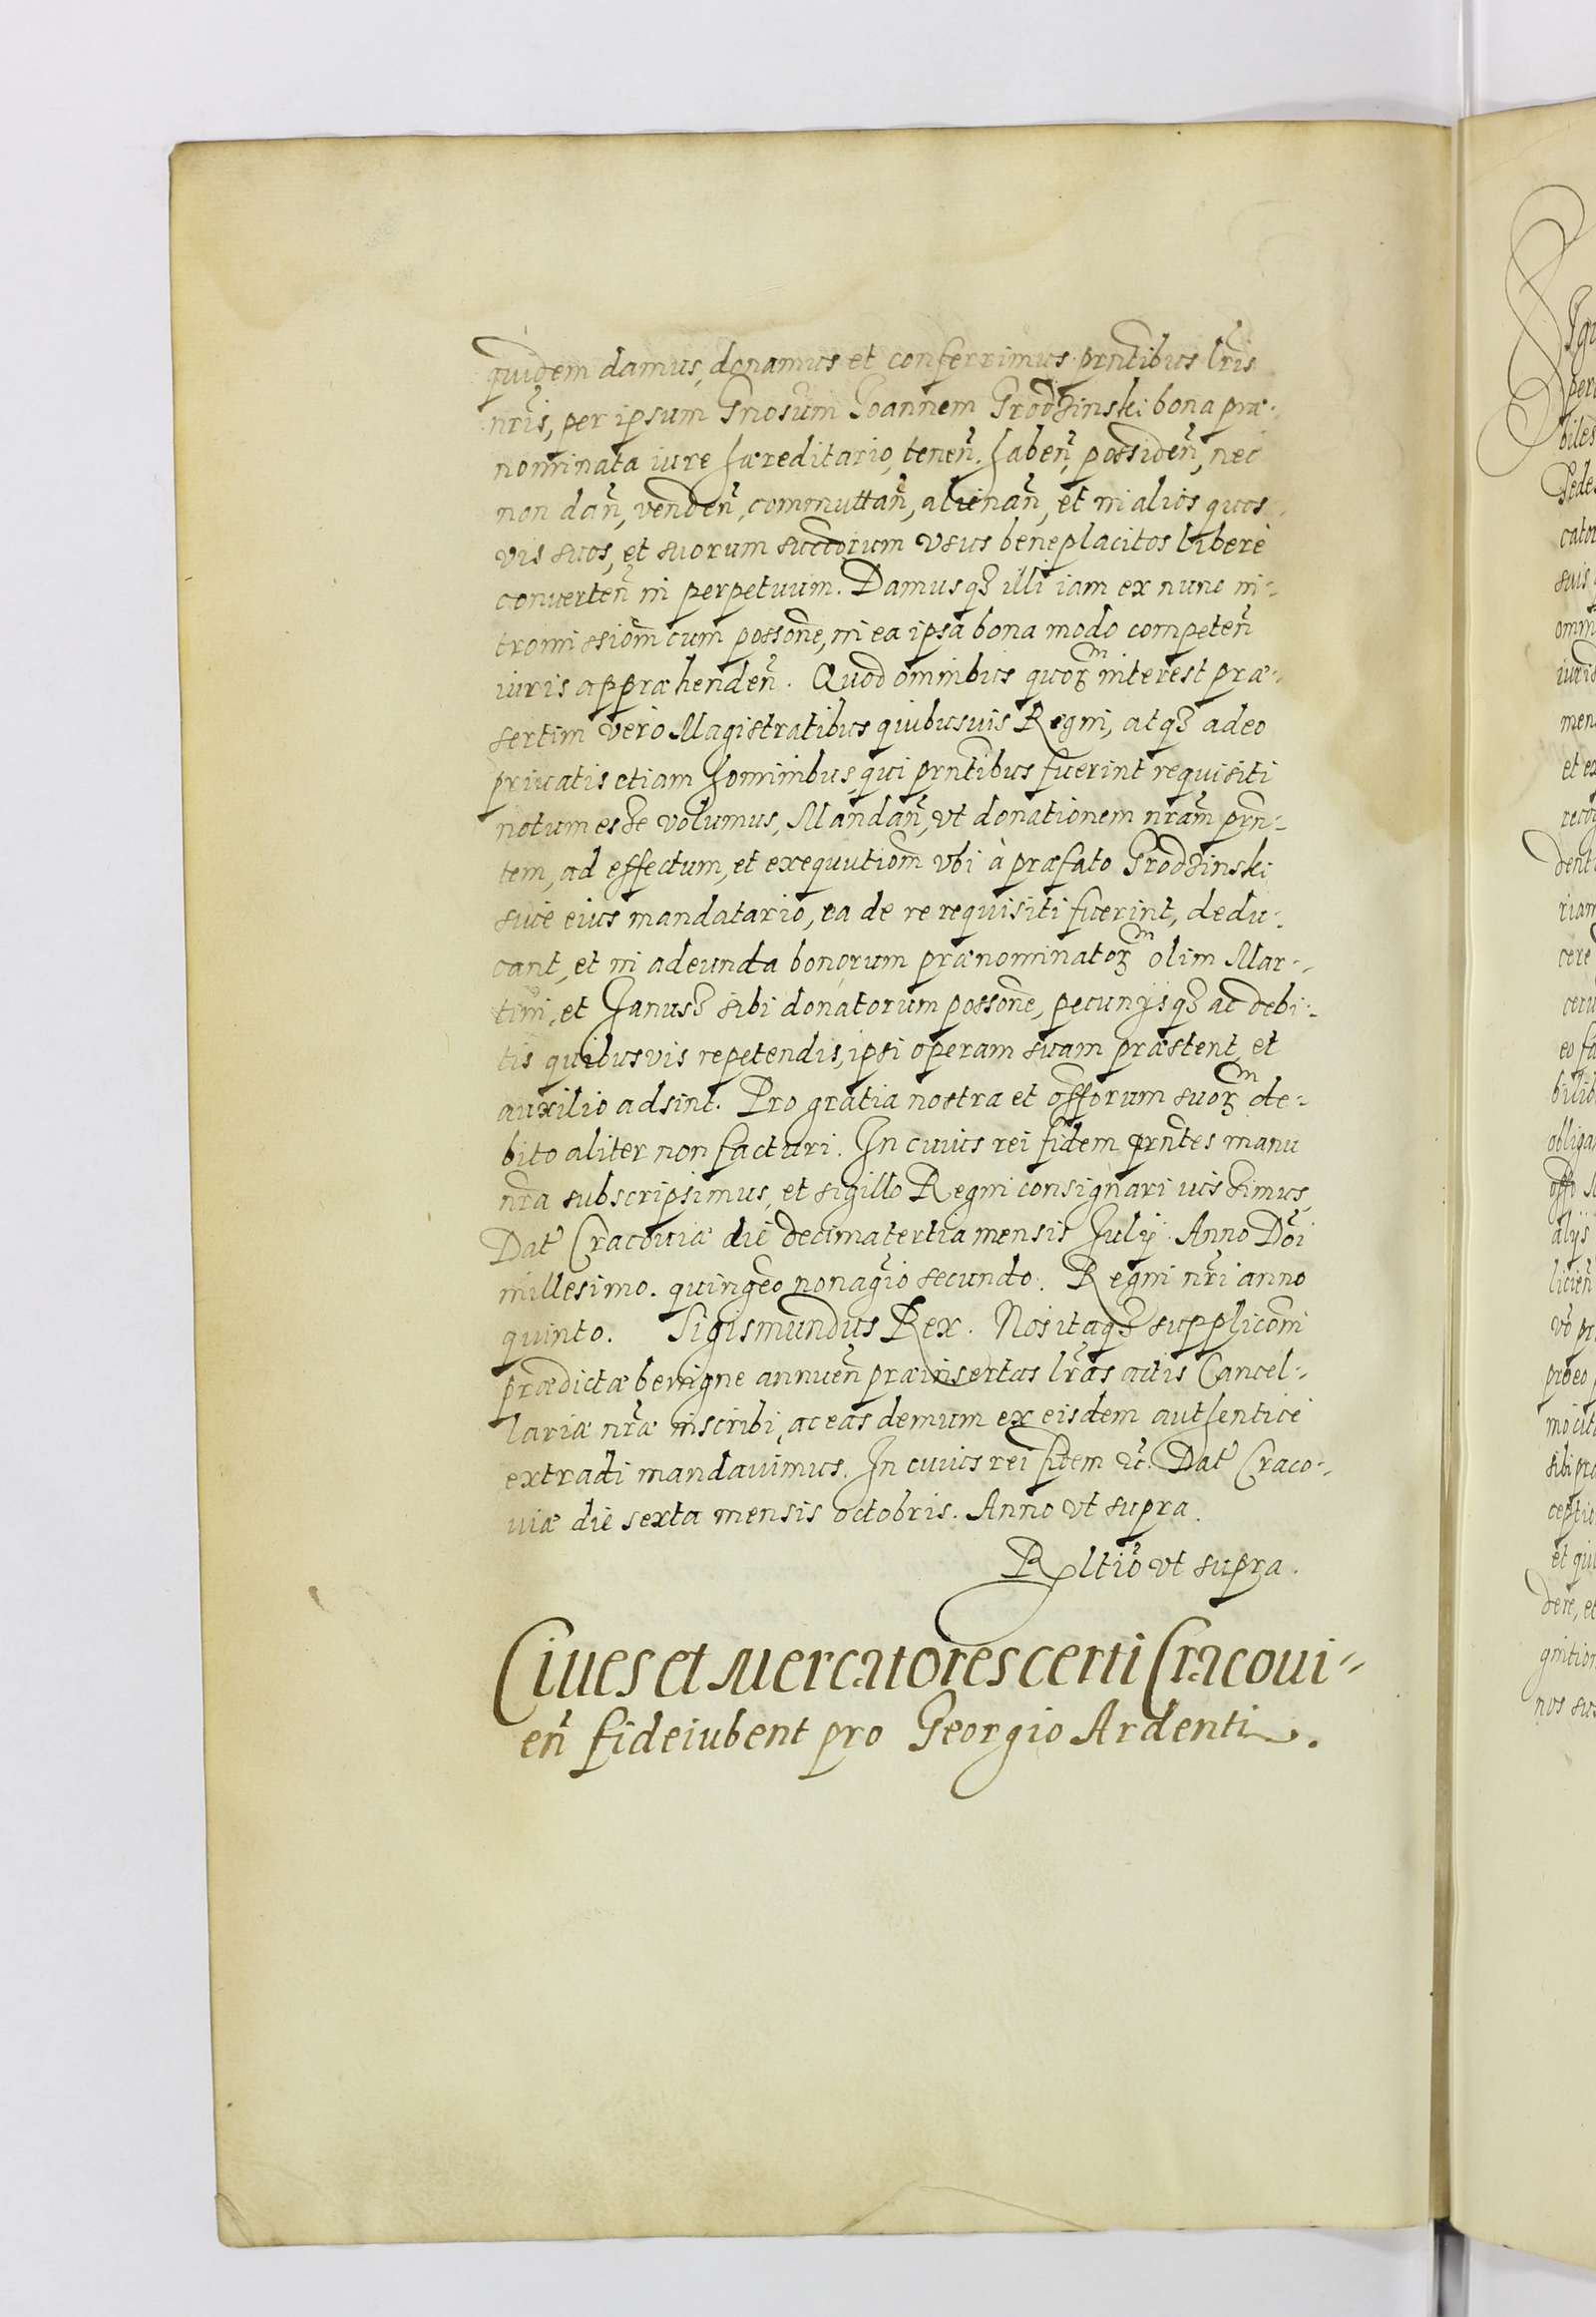 quidem damus, donamus et conferrimus prñtibus lr̃is
nr̃is, per ipsum Gnosum Joannem Grodzinski bona præ-
nominata iure hæreditario, teneñ. habeñ, possideñ, nec
non dañ, vendeñ, commuttañ, alienañ, et in alios quos
vis suos, et suorum succorum vsus beneplacitos liberè
conuerteñ in perpetuum. Damusqȝ illi iam ex nunc in-
tromissiom̃ cum possõne, in ea ipsa bona modo competeñ
iuris appræhendeñ. Quod omnibus quoꝝm interest præ-
sertim vero Magistratibus quibusuis Regni, atqȝ adeo
priuatis etiam hominibus, qui prñtibus fuerint requisiti
notum esse volumus, Mandañ, vt donationem nr̃am prñ-
tem, ad effectum, et exequutiom̃ vbi à præfato Grodzinski
siue eius mandatario, ea de re requisiti fuerint, dedu-
cant, et in adeunda bonorum prænominatoꝝm olim Mar-
tini, et Janusȝ sibi donatorum possõne, pecunijsqȝ ac debi-
tis quibusvis repetendis, ipsi operam suam præstent, et
auxilio adsint. Pro gratia nostra et offorum suoꝝm de-
bito aliter non facturi. In cuius rei fidem prñtes manu
nr̃a subscripsimus, et sigillo Regni consignari iussimus,
Dat Cracouiæ die decimatertia mensis July. Anno Dñi
millesimo. quingẽo nonagio secundo. Regni nr̃i anno
quinto. Sigismundus Rex. Nos itaqȝ supplicõni
prædictæ benigne annueñ præinsertas lr̃as actis Cancel-
lariæ nr̃æ inscribi, ac eas demum ex eisdem authentice
extradi mandauimus. In cuius rei fidem etc̃. Dat Craco-
uiæ die sexta mensis octobris. Anno vt supra.
Rltio vt supra.
Ciues et Mercatores certi Cracoui-
eñ fideiubent pro Georgio Ardenti.